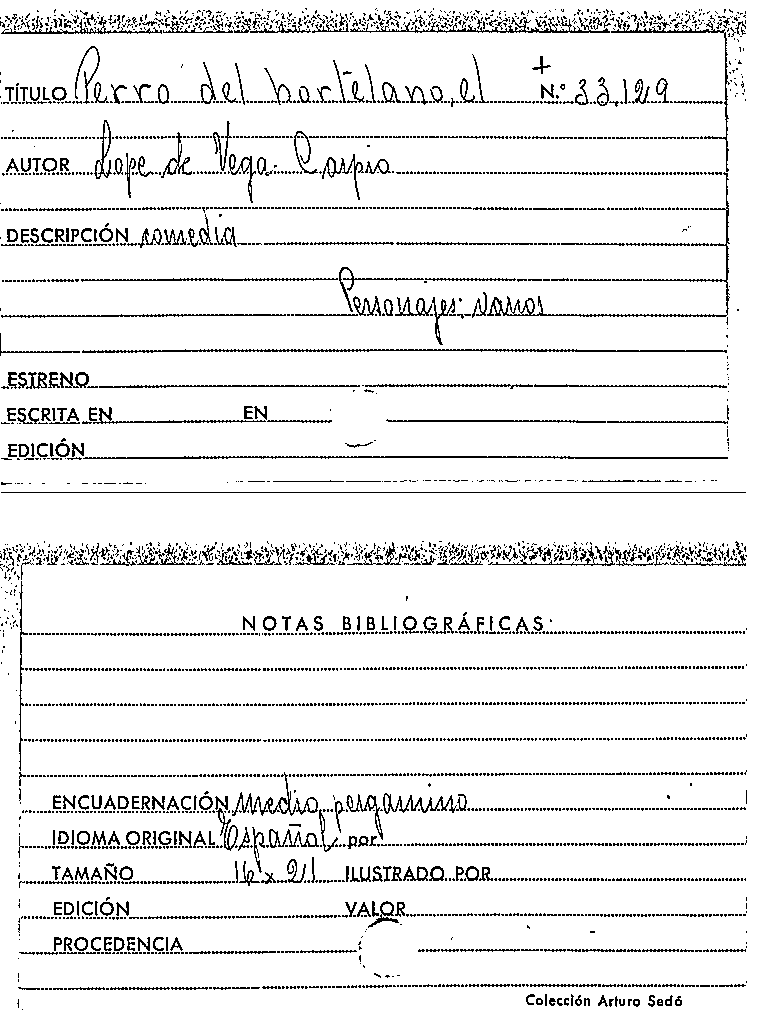 TÍTULO Perro del hortelano, el + N.º 33.129
AUTOR Lope de Vega. Carpio
DESCRIPCIÓN comedia
Personajes: varios
ESTRENO
ESCRITA EN EN
EDICIÓN
NOTAS BIBLIOGRÁFICAS
ENCUADERNACIÓN medio pergamino
IDIOMA ORIGINAL Español por
TAMAÑO 16 x 21 ILUSTRADO POR
EDICIÓN VALOR
PROCEDENCIA
Colección Arturo Sedó